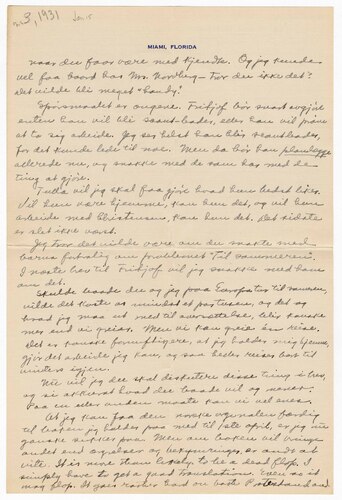 3, 1931 Jan. 15
MIAMI, FLORIDA
naar du faar være med kjendte. Og jeg kunde
vel faa board hos Mrs. Norberg - tror du ikke det?
Det vilde bli meget "handy".
Spørsmaalet er ungene. Fritjof bør snart avgjøre
enten han vil bli scout-leader, eller han vil prøve
at ta sig arbeide. Jeg ser helst han blir scoutleder,
for det kunde lede til noe. Men da bør han planlægge
allerede nu, og snakke med de som har med de
ting at gjøre.
Tulla vil jeg skal faa gjøre hvad hun bedst liker.
Vil hun være hjemme, kan hun det, og vil hun
arbeide med Christensen, kan hun det. Det sidste
er slet ikke det.
Jeg tror det vilde være om du snakte med
barna fortrolig om problemet "til sommeren".
I næste brev til Fritjof vil jeg snakke med ham
om det.
Skulde baade du og jeg paa Europatur til sommeren,
vilde det koste os mindst et par tusen, og det og
hvad jeg maa ut med til oversættelse, blir kanske
mer end vi greier. Men vi kan greie én reise.
Det er kanske fornuftigere, at jeg holder mig hjemme,
gjør det arbeide jeg kan, og saa heller reiser bort til
vinters igjen.
Nu vil jeg du skal diskutere disse ting i brev,
og si akkurat hvad du baade vil og mener.
Paa en eller anden maate kan vi vel enes.
At jeg kan faa den norske originalen færdig
til boken jeg holder paa med til late april, er jeg nu
ganske sikker paa. Men om boken vil bringe
andet end utgifter og bekymringer, er ondt at
vite. It is more than likely to be a dead flop. I
simply have to get a good translation. Even so it
may flop. It goes rather hard on both Protestand and